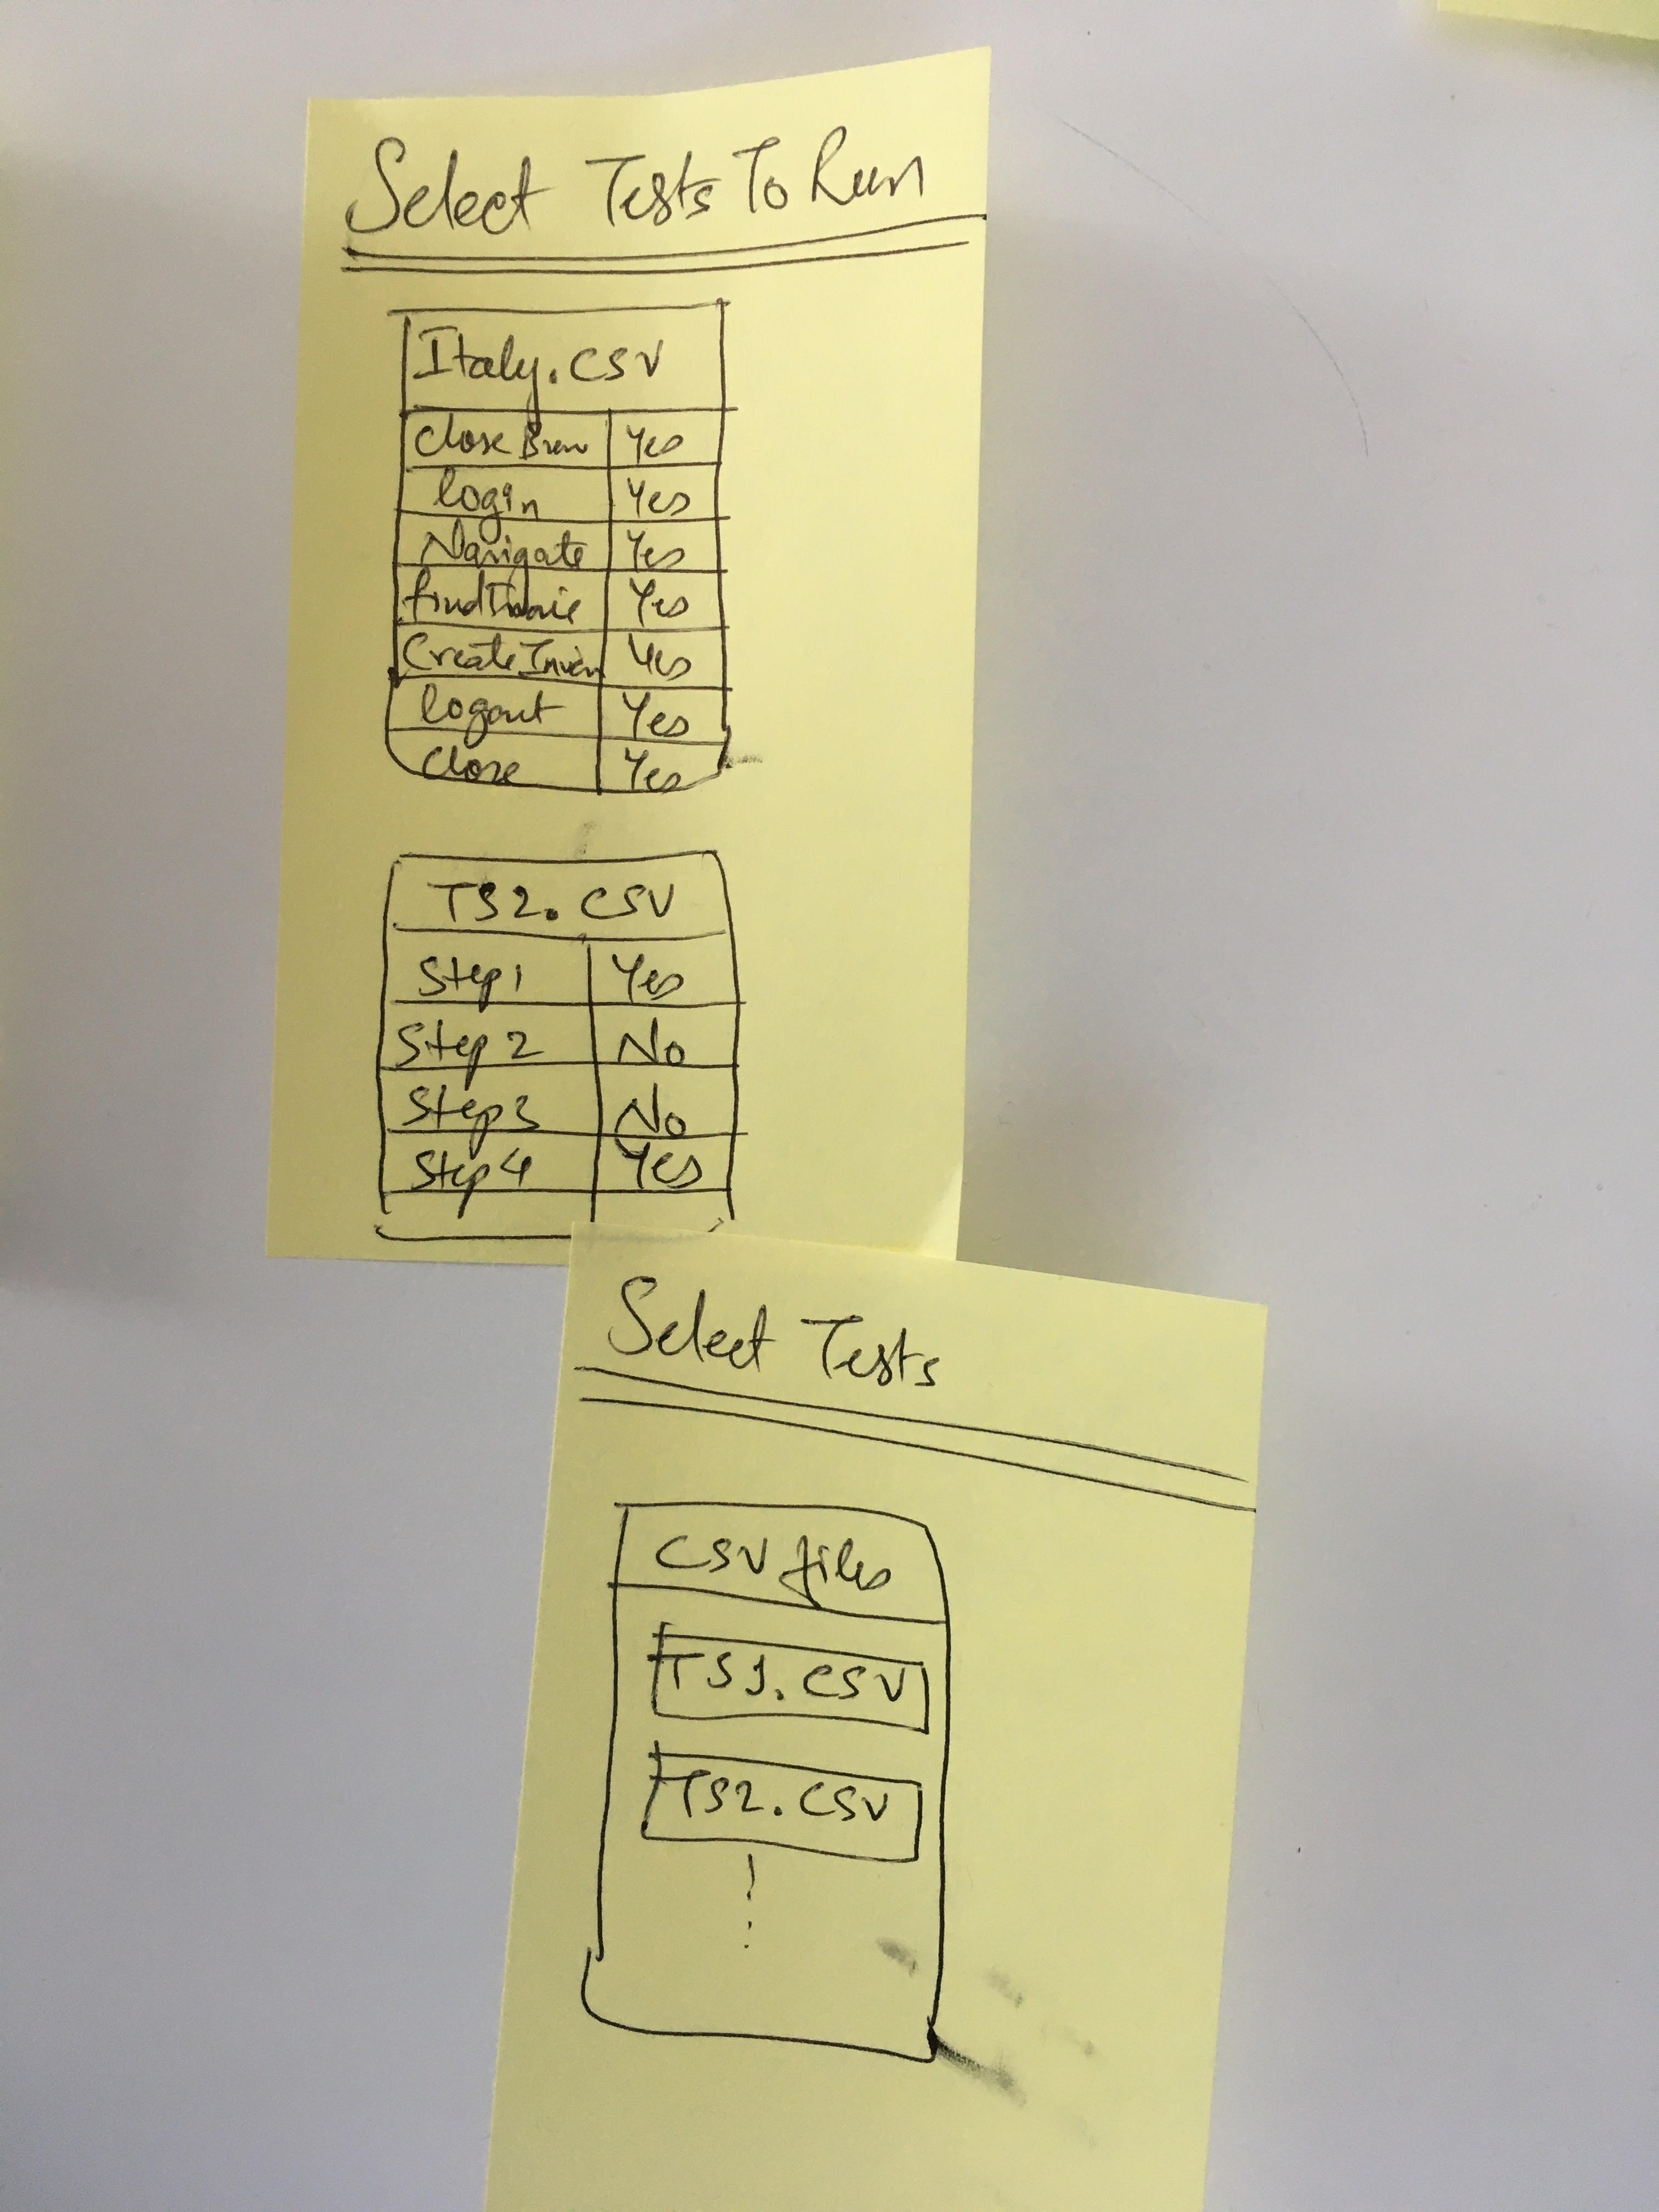 Select Tests To Run
Italy.CSV
Close Yes
login Yes
Navigate Yes
Yes
Create Yes
logout Yes
Close Yes
TS2.CSV
Step1 Yes
Step 2 No
Step3 No
Step 4 Yes
Select Tests
CSV files
TS1.CSV
TS2.CSV